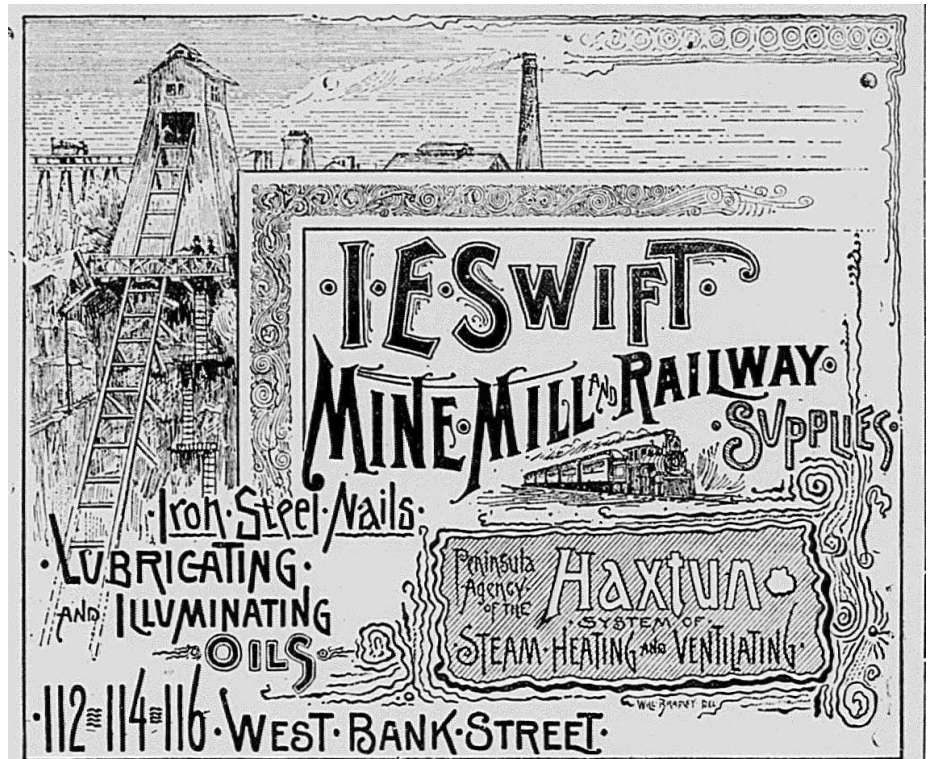 ·I·E·SWIFT·
MINE·MILL AND RAILWAY·
·SUPPLIES·
·Iron·Steel·Nails·
·LUBRICATING·
AND ILLUMINATING
OILS
Peninsula
Agency·
·OF·THE
Haxtun
·SYSTEM OF·
·STEAM·HEATING AND VENTILATING·
WILL BRADLEY DEL
·112=114=116·WEST·BANK·STREET·